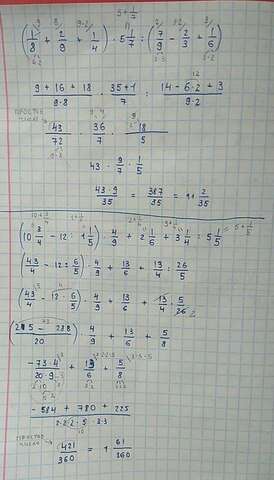 (1/8 + 2/9 + 1/4) · 5 1/7 : (7/9 - 2/3 + 1/6)
9 + 16 + 18 / 9·8 · 35+1 / 7 : 14 - 6·2 + 3 / 9·2
ПРОСТОЕ
ЧИСЛО
43/72 · 36/7 · 18/5
43 · 9/7 · 1/5
43·9 / 35 = 387/35 = 11 2/35
(10 3/4 - 12 : 1 1/5) · 4/9 + 2 1/6 + 3 1/4 : 5 1/5
(43/4 - 12 : 6/5) · 4/9 + 13/6 + 13/4 : 26/5
(43/4 - 12·6/5) · 4/9 + 13/6 + 13/4 · 5/26
(215 - 288 / 20) · 4/9 + 13/6 + 5/8
-73·4 / 20·9 + 13/6 + 5/8
-584 + 780 + 225 / 2·2·2·5·3·3
ПРОСТОЕ
ЧИСЛО
421/360 = 1 61/360